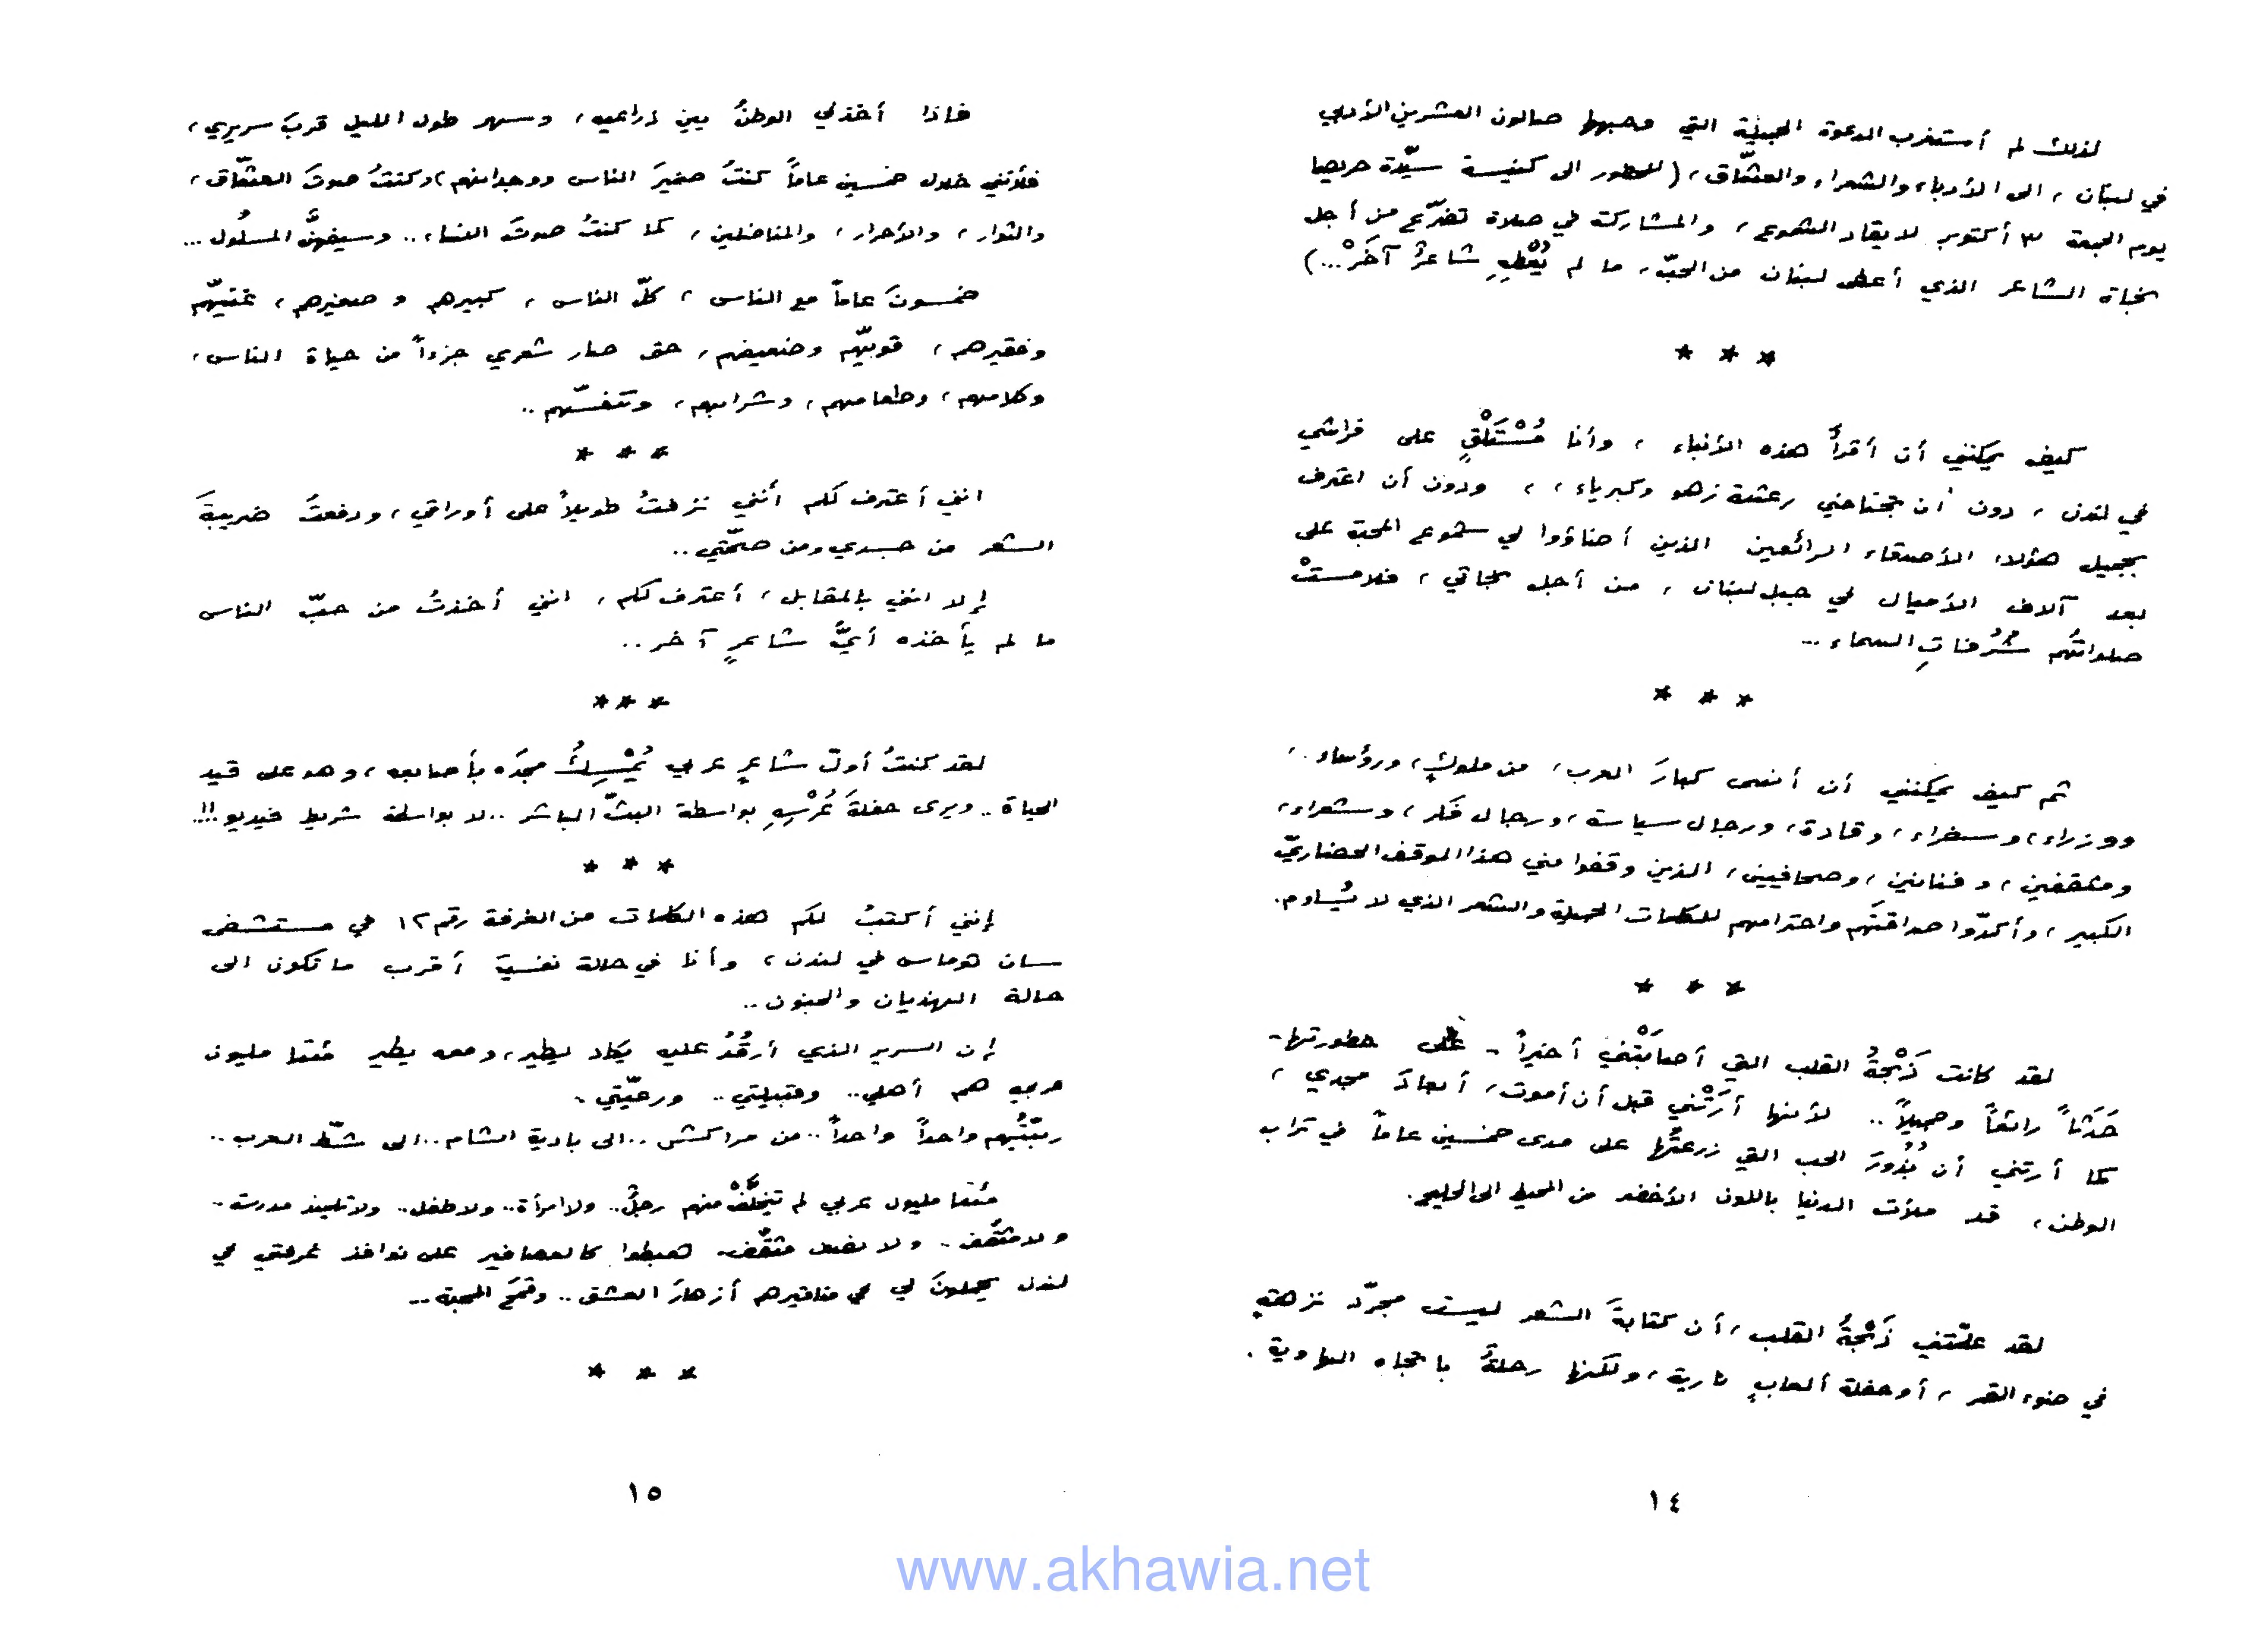 لذلك لم أستغرب الدعوة الجميلة التي وجهها صالون العشرين الأدبي
في لبنان ، الى الأدباء والشعراء والعشّاق ، (للحضور الى كنيسة سيّدة حريصا
يوم الجمعة ٣ أكتوبر لايقاد الشموع ، والمشاركة في صلاة تضرّع من أجل
نجاة الشاعر الذي أعطى لبنان من الحبّ ، ما لم يُعْطِهِ شاعرٌ آخَرْ...)
* * *
كيف يمكنني أن أقرأَ هذه الأنباء ، وأنا مُسْتَلْقٍ على فراشي
في لندن ، دون أن تجتاحني رعشة زهو وكبرياء ، ، ودون أن اعترف
بجميل هؤلاء الأصدقاء الرائعين الذين أضاؤوا لي شموع المحبة على
بعد آلاف الأميال في جبل لبنان ، من أجل نجاتي ، فلامستْ
صلواتُهم شُرُفاتِ السماء ..
* * *
ثم كيف يمكنني أن أنسى كبارَ العرب ، من ملوكٍ ، ورؤساء ..،
ووزراء ، وسفراء ، وقادة ، ورجال سياسة ، ورجال فكر ، وشعراء ،
ومثقفين ، وفنانين ، وصحافيين ، الذين وقفوا مني هذا الموقف الحضاريّ
الكبير ، وأكدّوا صداقتَهم واحترامهم للكلمات الجميلة والشعر الذي لا يُساوم.
* * *
لقد كانت ذَبْحَةُ القلب التي أصابَتْني أخيراً - على خطورتها -
حَدَثاً رائعاً وجميلاً .. لأنها أرَتْني قبل أن أموت ، أبعادَ مجدي ،
كما أرتني أن بُذُورَ الحب التي زرعتُها على مدى خمسين عاماً في تراب
الوطن ، قد ملأت الدنيا باللون الأخضر من المحيط الى الخليج.
لقد علّمتني ذَبْحَةُ القلب ، أن كتابةَ الشعر ليست مجرّد نزهةٍ
في ضوء القمر ، أو حفلة ألعابٍ نارية ، ولكنها رحلةٌ باتجاه الهاوية .
١٤
فاذا أخذني الوطنُ بين ذراعيه ، وسهر طول الليل قربَ سريري ،
فلأنني خلال خمسين عاماً كنتُ ضميرَ الناس ووجدانهم ، وكنتُ صوتَ العشّاق ،
والثوار ، والأحرار ، والمناضلين ، كما كنتُ صوتَ النساء .. وسيفهنَّ المسلُول ...
خمسونَ عاماً مع الناس ، كلّ الناس ، كبيرهم وصغيرهم ، غنيّهم
وفقيرهم ، قويّهم وضعيفهم ، حتى صار شعري جزءاً من حياة الناس ،
وكلامهم ، وطعامهم ، وشرابهم ، وتنفسّهم ..
* * *
انني أعترف لكم أنني نزفتُ طويلاً على أوراقي ، ودفعتُ ضريبةَ
الشعر من جسدي ومن صحّتي ..
إلا انني بالمقابل ، أعترف لكم ، انني أخذتُ من حبّ الناس
ما لم يأخذه أيُّ شاعرٍ آخر ..
* * *
لقد كنتُ أولَ شاعرٍ عربي يُمْسِكُ مجدَه بأصابعه ، وهو على قيد
الحياة .. ويرى حفلةَ عُرْسِهِ بواسطة البثّ المباشر .. لا بواسطة شريط فيديو !!..
* * *
إنني أكتبُ لكم هذه الكلمات من الغرفة رقم ١٢ في مستشفى
سان توماس في لندن ، وأنا في حالة نفسية أقرب ما تكون الى
حالة الهذيان والجنون ..
إن السرير الذي أرقُدُ عليه يكاد يطير ، ومعه يطير مئتا مليون
عربي هم أهلي .. وقبيلتي .. ورعيّتي .
ربّيتُهم واحداً واحداً .. من مراكش .. الى بادية الشام .. الى شطّ العرب ..
مئتا مليون عربي لم يتخلّفْ منهم رجلٌ .. ولا امرأة .. ولا طفل .. ولا تلميذ مدرسة ..
ولا مثقّف .. ولا نصف مثقّف . هبطوا كالعصافير على نوافذ غرفتي في
لندن يحملونَ لي في مناقيرهم أزهارَ العشق .. وقمحَ المحبة ..
* * *
١٥
www.akhawia.net